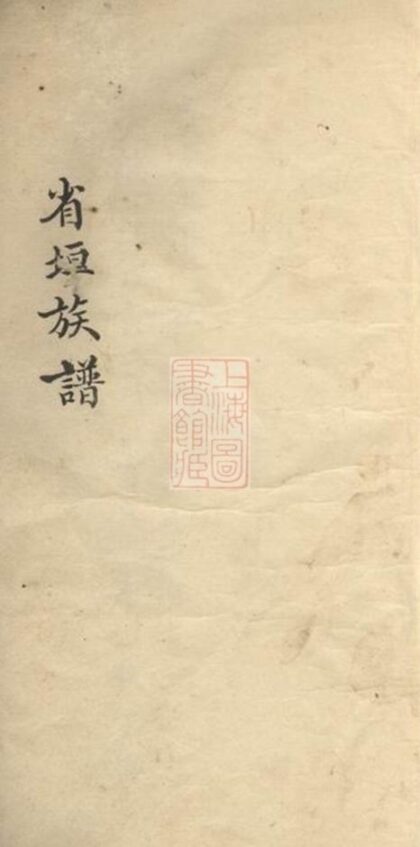 上海圖
書館藏
省垣族譜